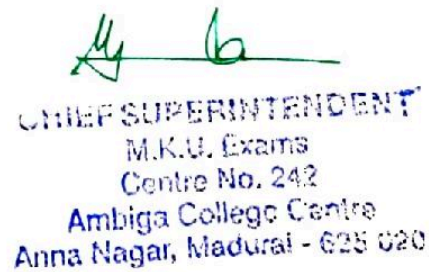 CHIEF SUPERINTENDENT
M.K.U. Exams
Centre No. 242
Ambiga College Centre
Anna Nagar, Madurai - 625 020